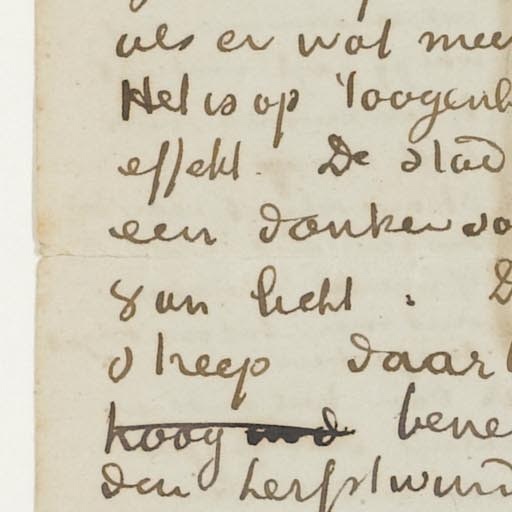 als er wat mee
Het is op 't oogenb
effekt. De stad
een donker
van licht. D
streep daar
hoog bene
den herfstwind